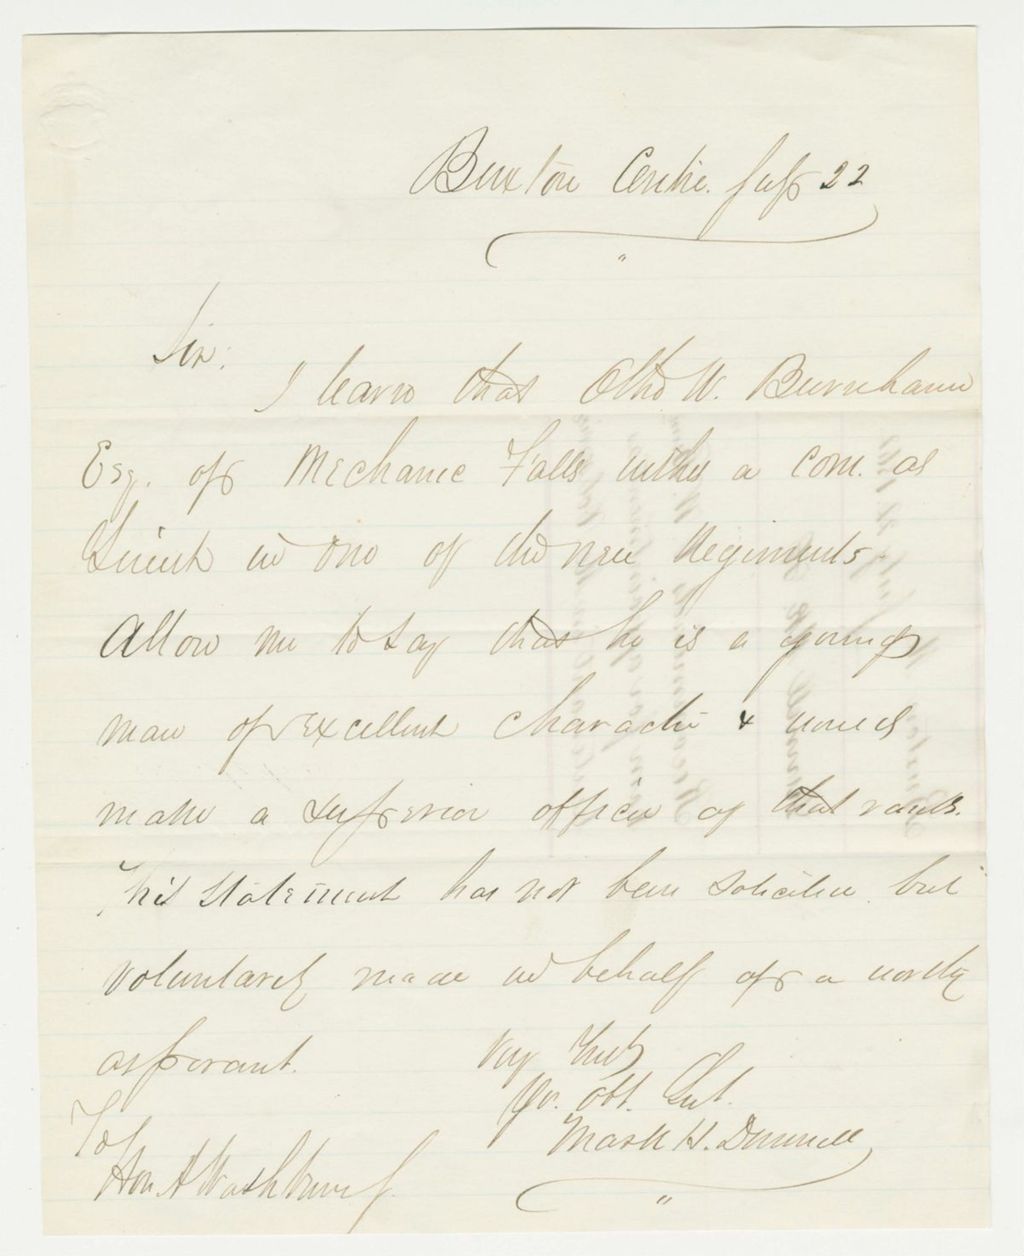 Buxton Centre. July 22
Sir:
I learn that Otho W. Burnham
Esq. of Mechanic Falls wishes a com. as
Lieut in one of the new Regiments.
Allow me to say that he is a young
man of excellent character & would
make a superior officer of that rank.
This statement has not been solicited but
voluntarily made in behalf of a worthy
aspirant. Very Truly
Yr. obt. Svt.
Mark H. Dunnell
To
Hon. I Washburn Jr.